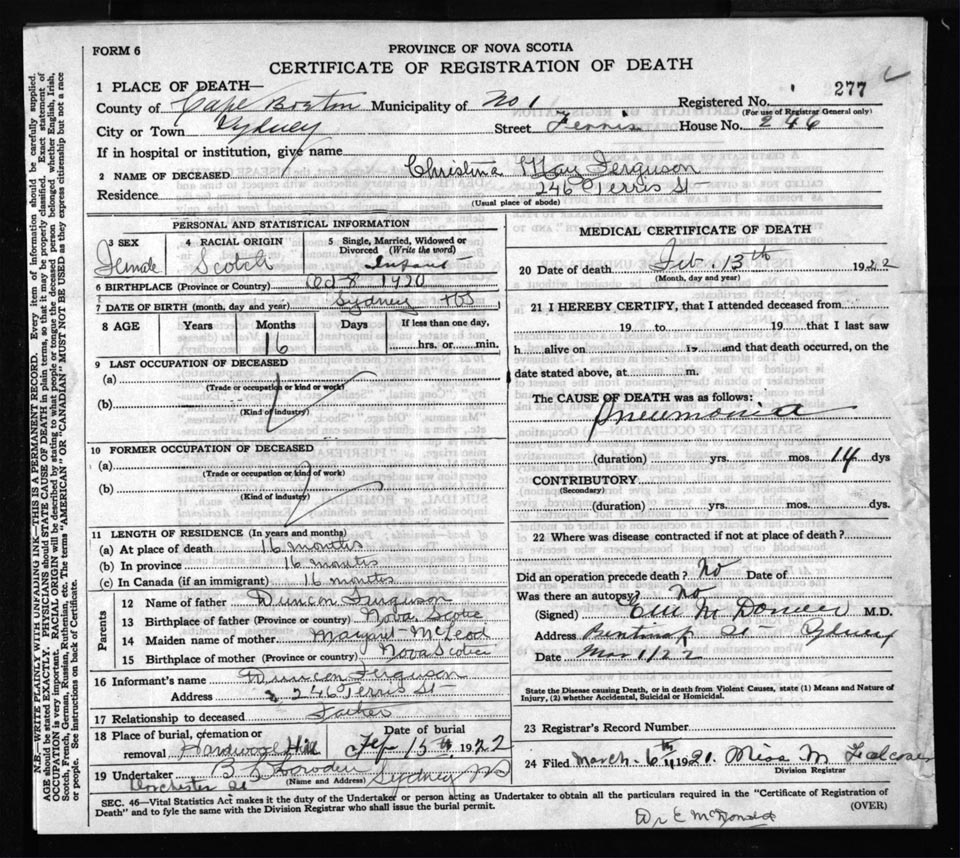 FORM 6
PROVINCE OF NOVA SCOTIA
CERTIFICATE OF REGISTRATION OF DEATH
277
1 PLACE OF DEATH—
County of Cape Breton Municipality of No 1 Registered No.
(For use of Registrar General only)
City or Town Sydney Street Ferris House No. 246
If in hospital or institution, give name
2 NAME OF DECEASED Christina May Ferguson
Residence 246 Ferris St
(Usual place of abode)
PERSONAL AND STATISTICAL INFORMATION
3 SEX Female
4 RACIAL ORIGIN Scotch
5 Single, Married, Widowed or Divorced (Write the word) Infant
6 BIRTHPLACE (Province or Country) Oct 8 1920
7 DATE OF BIRTH (month, day and year) Sydney
8 AGE Years Months Days If less than one day,
16 hrs. or min.
9 LAST OCCUPATION OF DECEASED
(a)
(Trade or occupation or kind or work)
(b)
(Kind of industry)
10 FORMER OCCUPATION OF DECEASED
(a)
(Trade or occupation or kind of work)
(b)
(Kind of industry)
11 LENGTH OF RESIDENCE (In years and months)
(a) At place of death 16 months
(b) In province 16 months
(c) In Canada (if an immigrant) 16 months
Parents
12 Name of father Duncan Ferguson
13 Birthplace of father (Province or country) Nova Scotia
14 Maiden name of mother Margret McLeod
15 Birthplace of mother (Province or country) Nova Scotia
16 Informant's name Duncan Ferguson
Address 246 Ferris St
17 Relationship to deceased Father
18 Place of burial, cremation or removal Hardwood Hill
Date of burial Feb 15th 1922
19 Undertaker
(Name and Address) Sydney NS
Dorchester St
MEDICAL CERTIFICATE OF DEATH
20 Date of death Feb. 13th 1922
(Month, day and year)
21 I HEREBY CERTIFY, that I attended deceased from
19 to 19 that I last saw
h alive on 19 and that death occurred, on the
date stated above, at m.
The CAUSE OF DEATH was as follows:
Pneumonia
(duration) yrs. mos. 14 dys
CONTRIBUTORY
(Secondary)
(duration) yrs. mos. dys.
22 Where was disease contracted if not at place of death?
Did an operation precede death? No Date of
Was there an autopsy? No
(Signed) M.D.
Address St Sydney
Date Mar 1/22
State the Disease causing Death, or in death from Violent Causes, state (1) Means and Nature of
Injury, (2) whether Accidental, Suicidal or Homicidal.
23 Registrar's Record Number
24 Filed March 6th 1921. Miss M
Division Registrar
SEC. 46—Vital Statistics Act makes it the duty of the Undertaker or person acting as Undertaker to obtain all the particulars required in the "Certificate of Registration of
Death" and to fyle the same with the Division Registrar who shall issue the burial permit.
(OVER)
Dr E McDonald
N.B.—WRITE PLAINLY WITH UNFADING INK—THIS IS A PERMANENT RECORD. Every item of information should be carefully supplied.
AGE should be stated EXACTLY. PHYSICIANS should STATE CAUSE OF DEATH in plain terms, so that it may be properly classified. Exact statement of
OCCUPATION is very important. RACIAL ORIGIN will be described by stating to what people or tongue the deceased person belonged whether English, Irish,
Scotch, French, German, Russian, Ruthenian, etc. The terms "AMERICAN" OR "CANADIAN" MUST NOT BE USED as they express citizenship but not a race
or people. See instructions on back of Certificate.